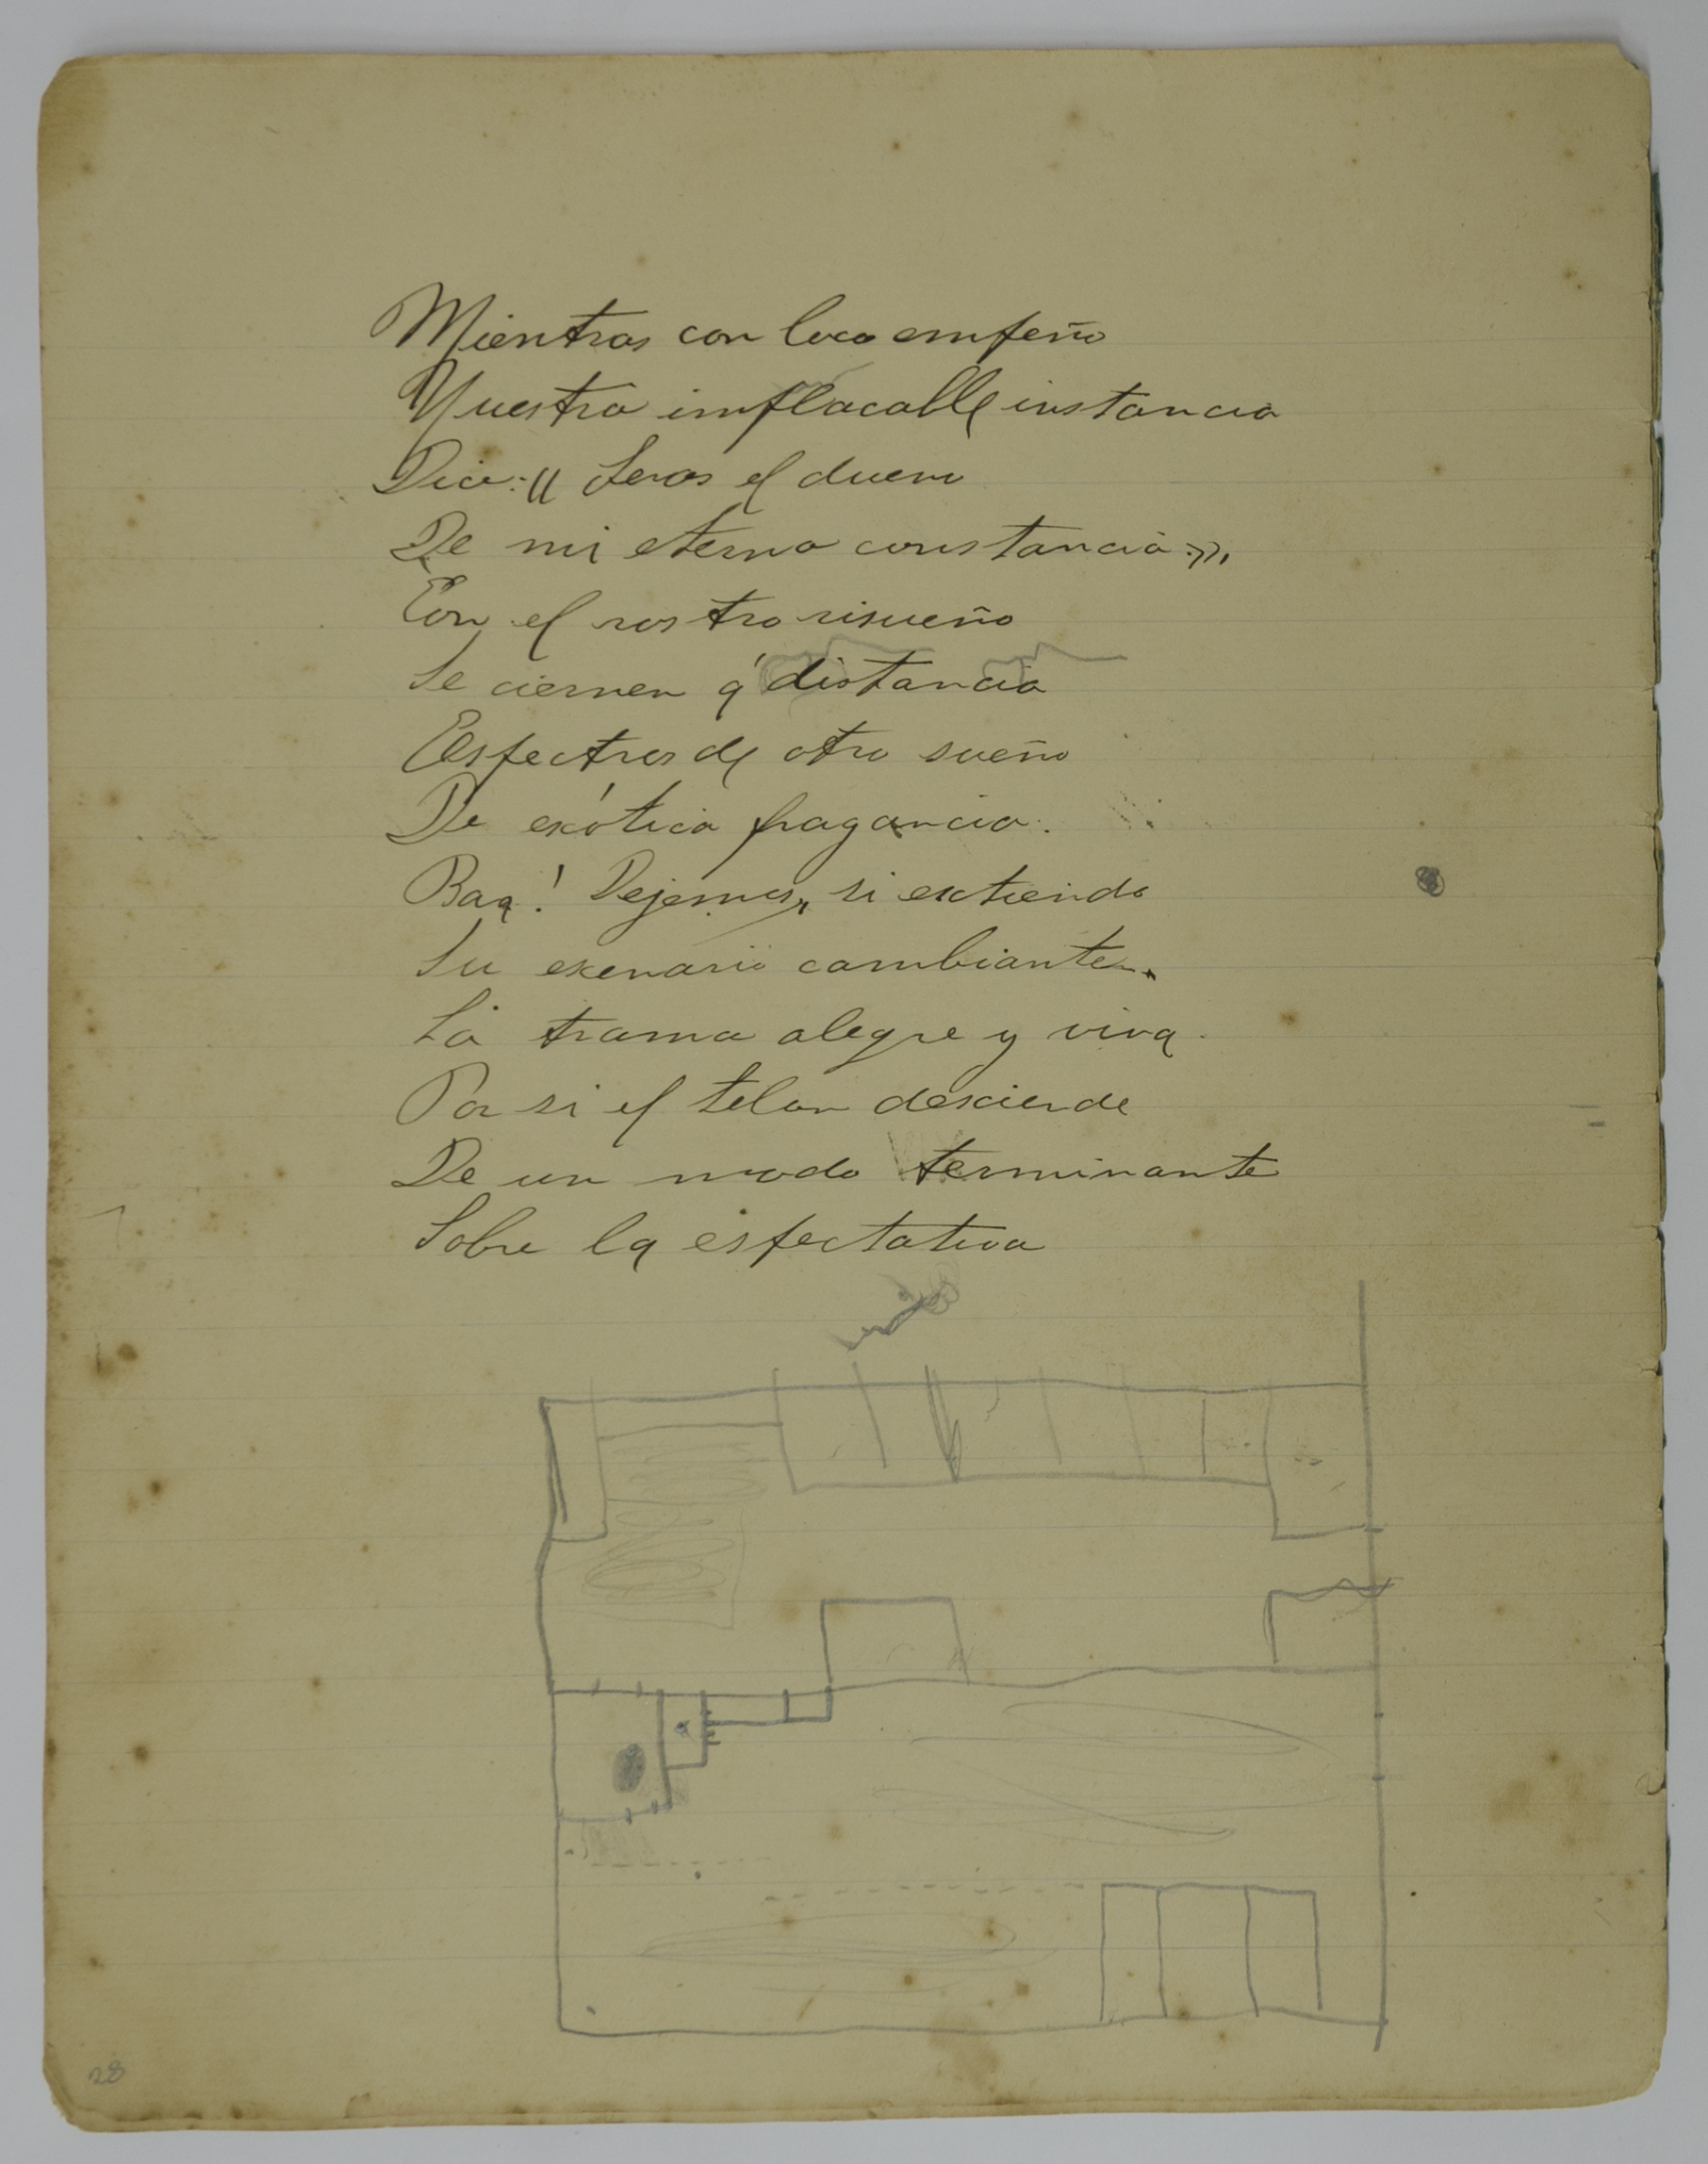 Mientras con loco empeño
Nuestra implacable instancia
Dice: « Seras el dueno
De mi eterna constancia »,
Con el rostro risueño
Se ciernen á distancia
Espectros de otro sueño
De exótica fragancia.
Baa! Dejemos, si extiende
Su exenario cambiante,
La trama alegre y viva.
Por si el telon desciende
De un modo terminante
Sobre la espectativa
28